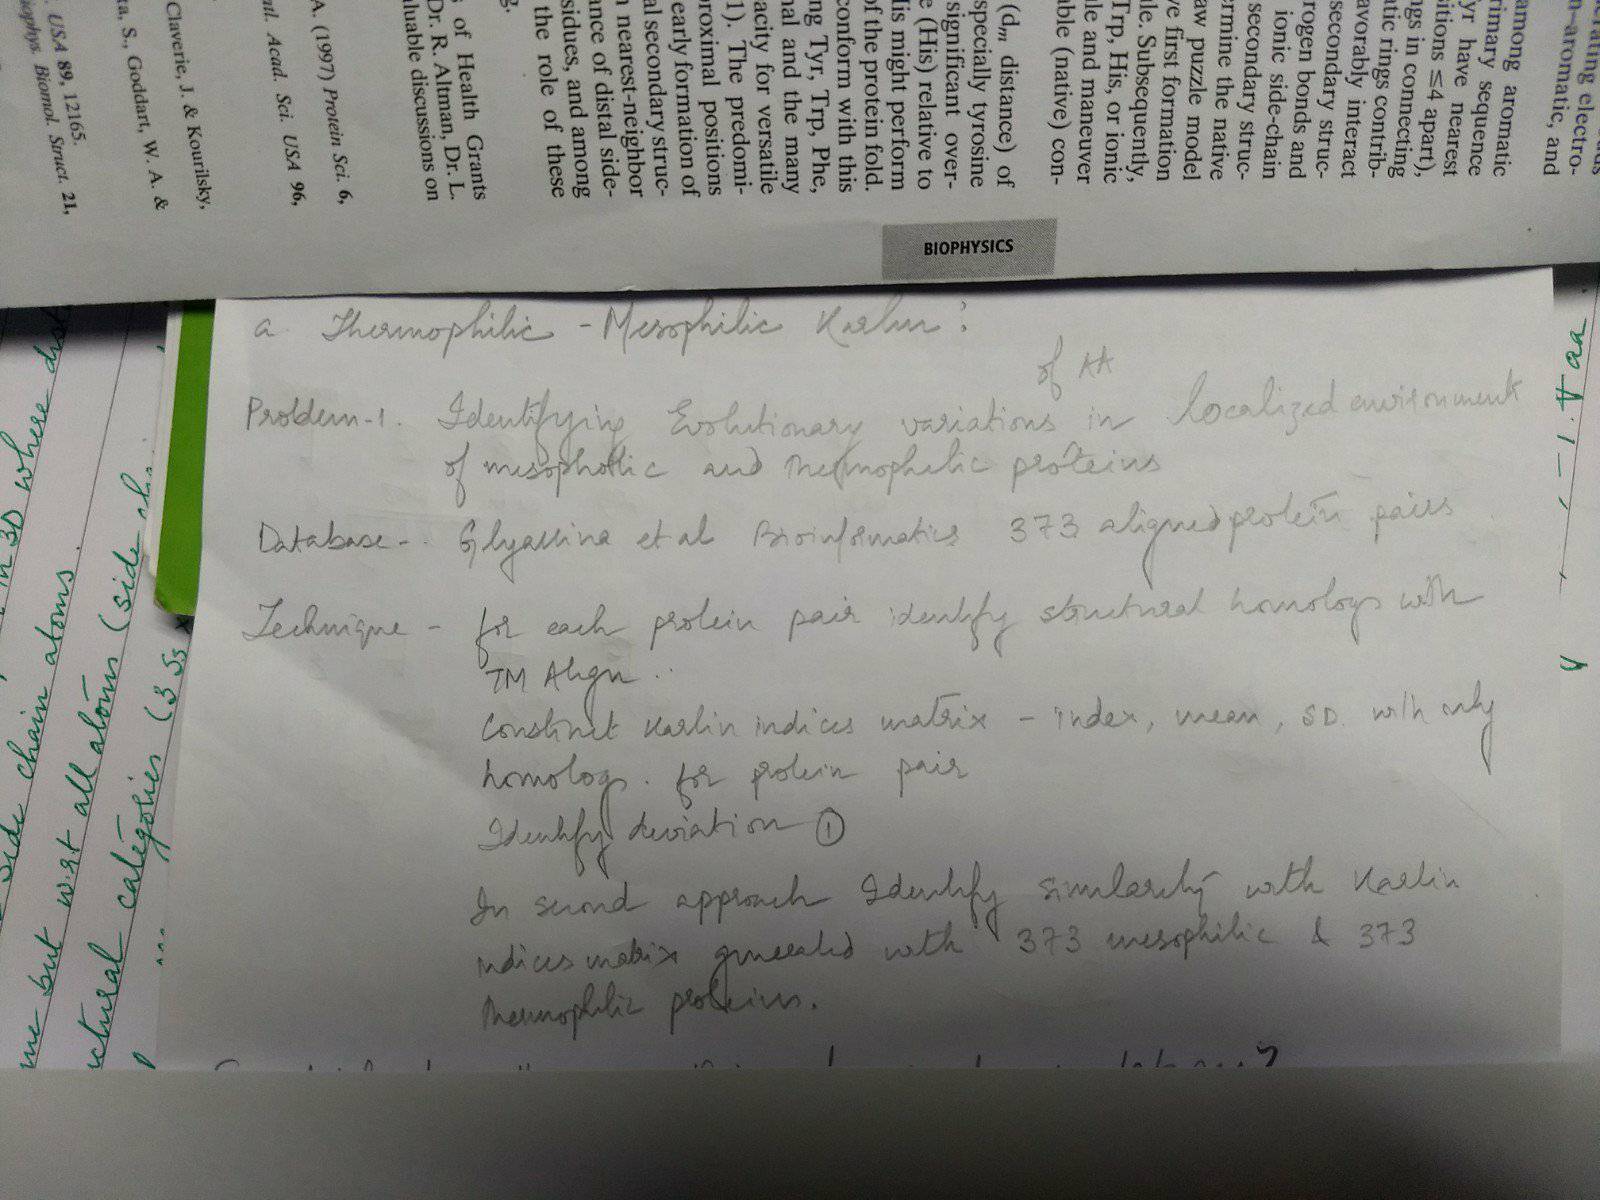 erating electro-
n–aromatic, and
among aromatic
rimary sequence
yr have nearest
sitions ≤4 apart),
ngs in connecting
atic rings contrib-
avorably interact
secondary struc-
rogen bonds and
ionic side-chain
secondary struc-
ermine the native
aw puzzle model
ve first formation
le. Subsequently,
Trp, His, or ionic
le and maneuver
able (native) con-
(dm distance) of
specially tyrosine
significant over-
e (His) relative to
His might perform
of the protein fold.
conform with this
ng Tyr, Trp, Phe,
nal and the many
acity for versatile
1). The predomi-
proximal positions
early formation of
al secondary struc-
n nearest-neighbor
ance of distal side-
sidues, and among
the role of these
g.
s of Health Grants
Dr. R. Altman, Dr. L.
luable discussions on
A. (1997) Protein Sci. 6,
atl. Acad. Sci. USA 96,
Claverie, J. & Kourilsky,
ta, S., Goddart, W. A. &
. USA 89, 12165.
iophys. Biomol. Struct. 21,
BIOPHYSICS
a Thermophilic - Mesophilic Karlin :
of AA
Problem-1. Identifying Evolutionary variations in localized environment
of mesophilic and thermophilic proteins
Database - et al Bioinformatics 373 aligned protein pairs
Technique - for each protein pair identify structural homologs with
TM Align .
Construct Karlin indices matrix - index, mean, SD. with only
homologs. for protein pair
Identify deviation ①
In second approach Identify similarity with Karlin
indices matrix generated with 373 mesophilic & 373
thermophilic proteins.
in 3D where dist
side chain atoms.
me but w.r.t all atoms (side
uctural categories (3 Ss